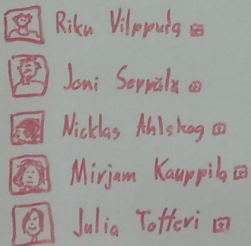 Riku Vilppula
Joni Seppälä
Nicklas Ahlskog
Mirjam Kauppila
Julia Totteri